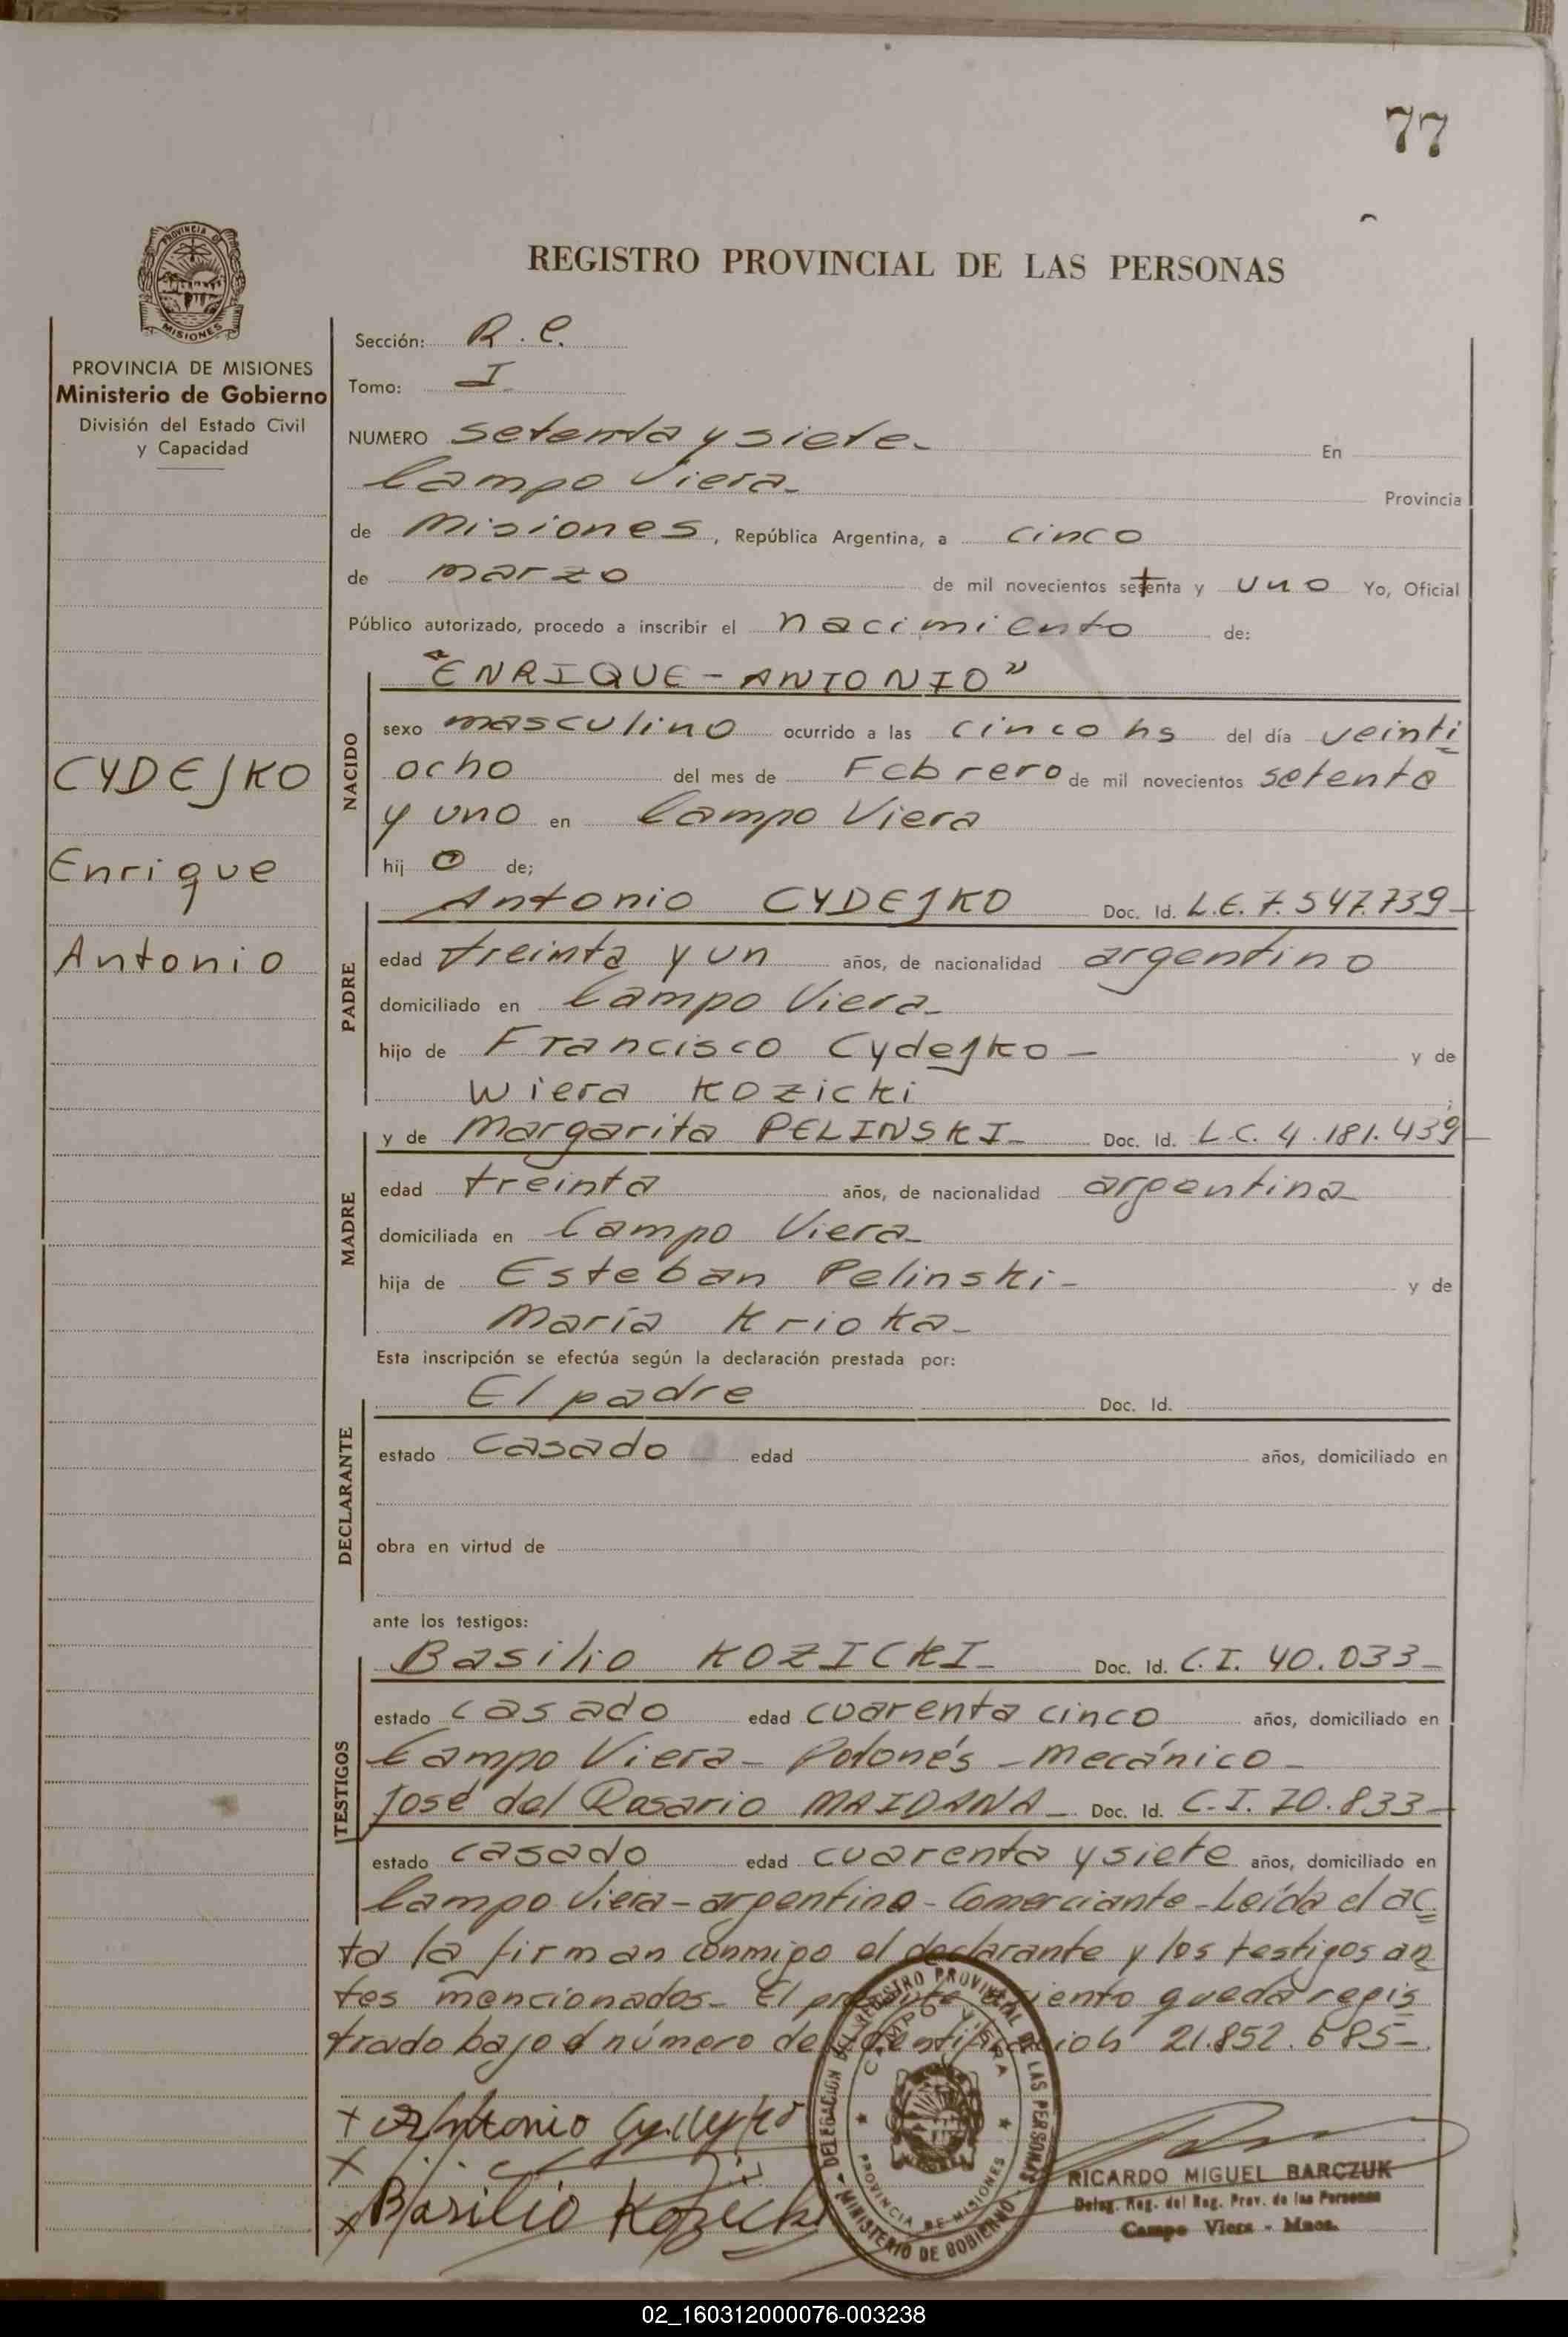 77
REGISTRO PROVINCIAL DE LAS PERSONAS
PROVINCIA DE MISIONES
Ministerio de Gobierno
División del Estado Civil
y Capacidad
CYDEJKO
Enrique
Antonio
Sección: R. C.
Tomo: I
NUMERO setenta y siete- En
Campo Viera- Provincia
de Misiones, República Argentina, a cinco
de marzo de mil novecientos setenta y uno Yo, Oficial
Público autorizado, procedo a inscribir el nacimiento de:
NACIDO
"ENRIQUE-ANTONIO"
sexo masculino ocurrido a las cinco hs del día veinti
ocho del mes de Febrero de mil novecientos setenta
y uno en Campo Viera
hij o de;
PADRE
Antonio CYDEJKO Doc. Id. L.E. 7.547.739-
edad treinta y un años, de nacionalidad argentino
domiciliado en Campo Viera-
hijo de Francisco Cydejko- y de
Wiera Kozicki ;
MADRE
y de Margarita PELINSKI- Doc. Id. L.C. 4.181.439
edad treinta años, de nacionalidad argentina
domiciliada en Campo Viera-
hija de Esteban Pelinski- y de
María Krioka-
Esta inscripción se efectúa según la declaración prestada por:
DECLARANTE
El padre Doc. Id.
estado Casado edad años, domiciliado en
obra en virtud de
ante los testigos:
TESTIGOS
Basilio KOZICKI- Doc. Id. C.I. 40.033-
estado casado edad cuarenta cinco años, domiciliado en
Campo Viera- Polonés-mecánico-
José del Rosario MAIDANA- Doc. Id. C.I. 70.833-
estado casado edad cuarenta y siete años, domiciliado en
Campo Viera-argentino-Comerciante-Leída el ac
ta la firman conmigo el declarante y los testigos an
tes mencionados- El presente asiento queda regis
trado bajo el número de identificación 21.852.685-.
x Antonio Cydejko
x
x Basilio Kozicki
DELEGACION DEL REGISTRO PROVINCIAL DE LAS PERSONAS
MINISTERIO DE GOBIERNO
CAMPO VIERA
PROVINCIA DE MISIONES
RICARDO MIGUEL BARCZUK
Deleg. Reg. del Reg. Prov. de las Personas
Campo Viera - Mnes.
02_160312000076-003238